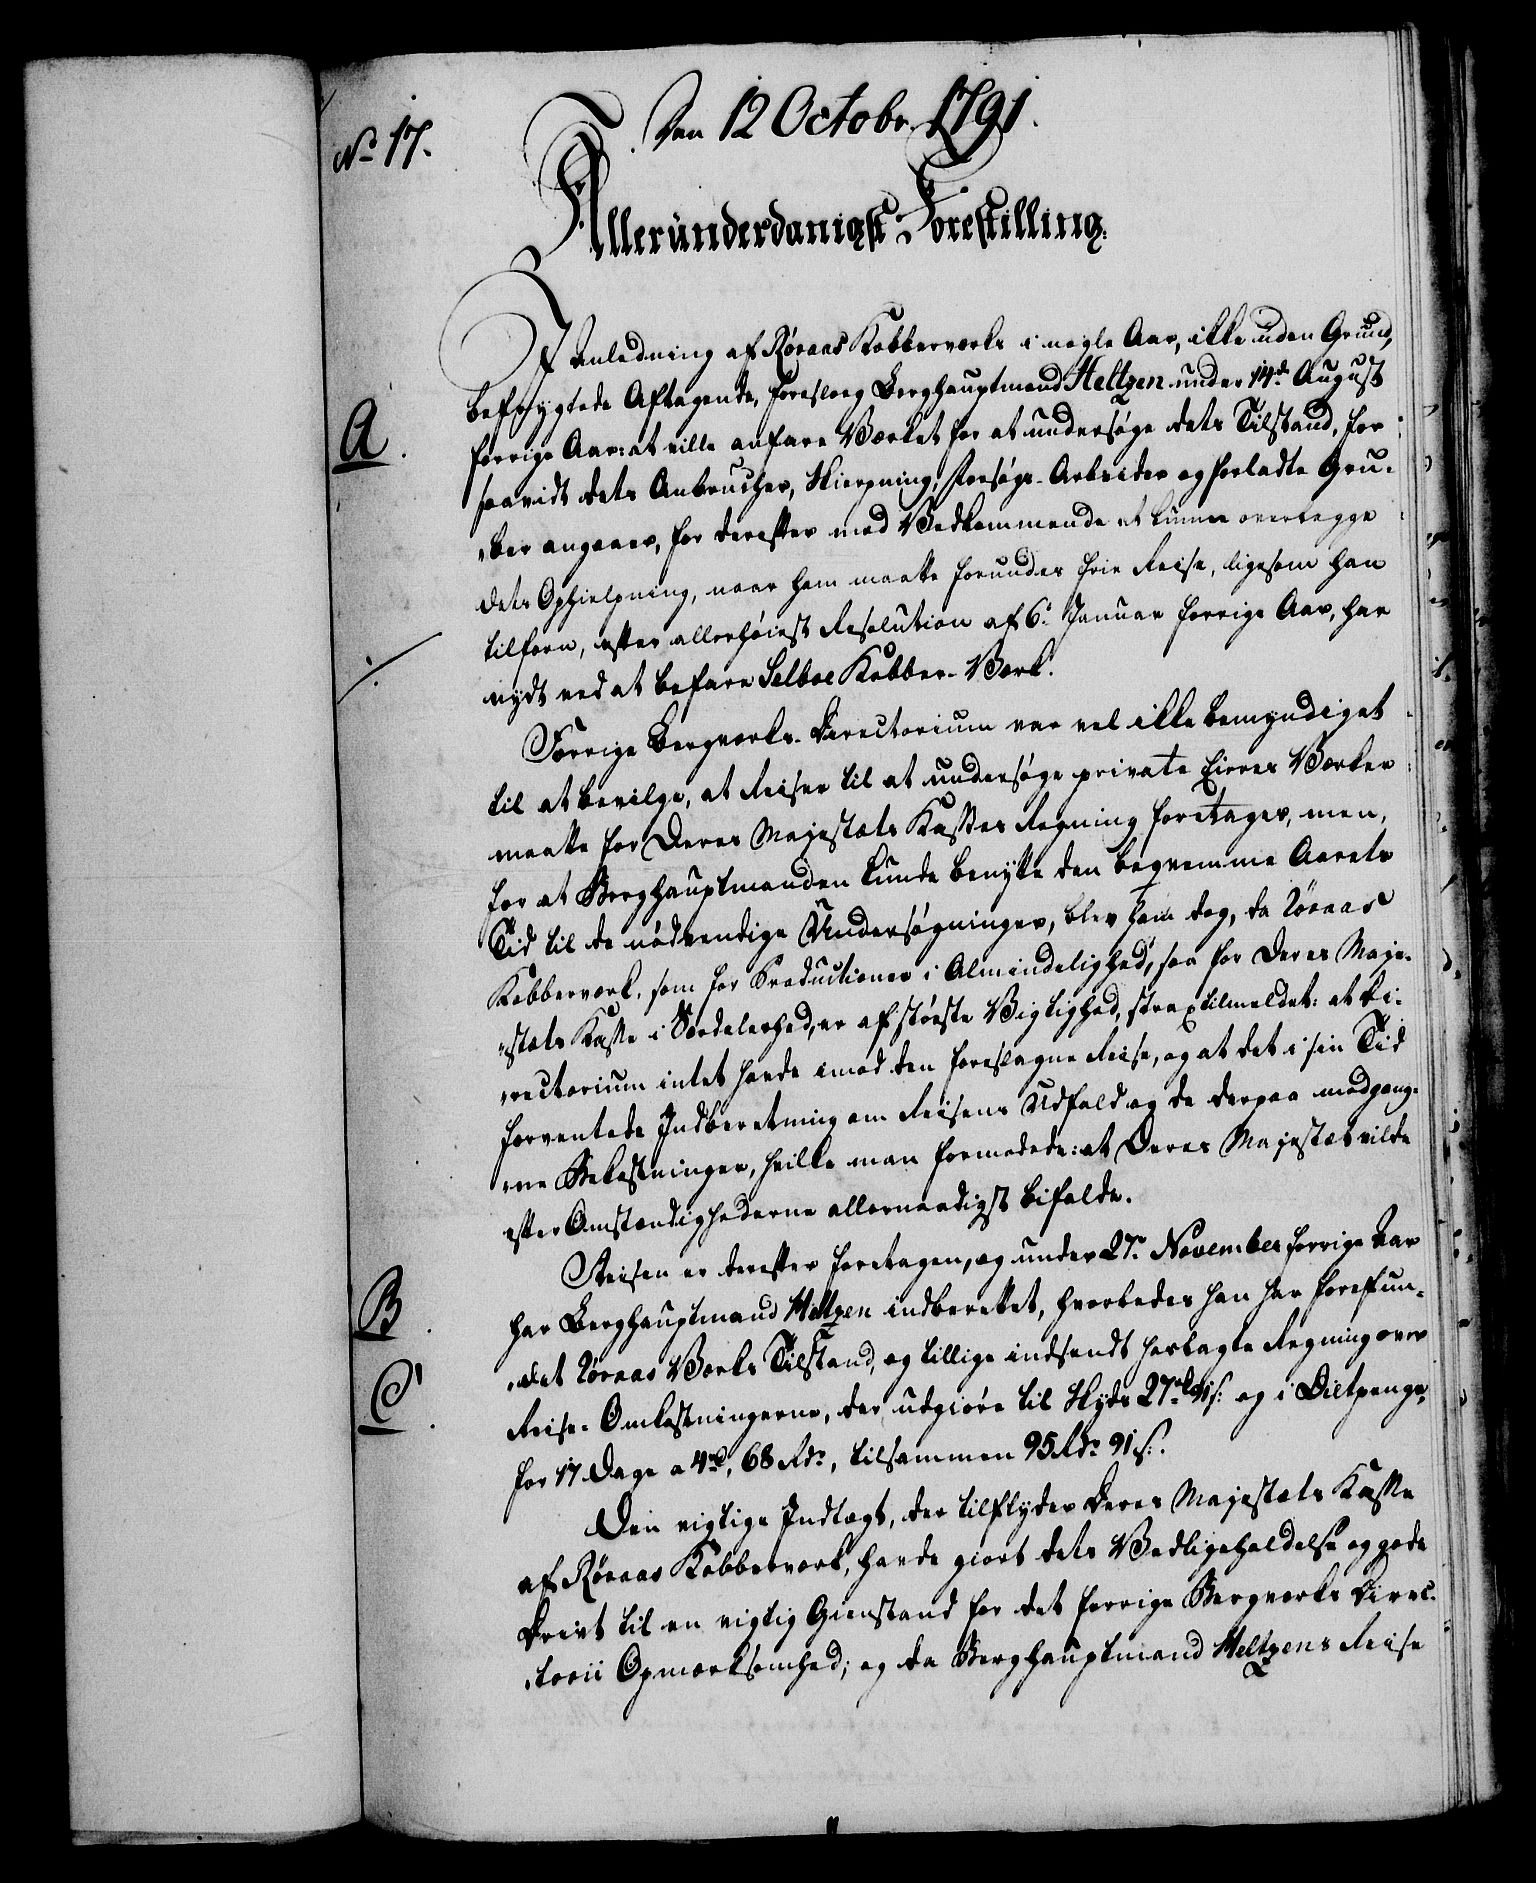 Den 12 Octobr. 1791.
No 17.
Allerunderdanigst Forestilling.
I Anledning af Røraas Kobberværks i nogle Aar, ikke uden Grund,
befrygtede Aftagende, foresloeg Berghauptmand Heltzen under 14de August
A.
forrige Aar: at ville anfare Værket for at undersøge dets Tilstand, for
saavidt dets Anbrucher, Skierpning, Forsøgs-Arbeider og forladte Gru-
ber angaaer, for derefter med Vedkommende at kunne overlægge
dets Ophielpning, naar ham maatte forundes frie Reise, ligesom han
tilforn, efter allerhøieste Resolution af 6te Januar forrige Aar, har
nydt ved at befare Selboe Kobber-Værk.
Forrige Bergværks-Directorium var vel ikke bemyndiget
til at bevilge, at Reiser til at undersøge private Eieres Værker
maatte for Deres Majestæts Kasses Regning foretages, men,
for at Berghauptmanden kunde benytte den beqvemme Aarets
Tid til de nødvendige Undersøgninger, blev ham dog, da Røraas
Kobberværk, som for Productioner i Almindelighed, saa for Deres Maje-
stæts Kasse i Særdeleshed, er af største Vigtighed, strax tilmeldet: at Di-
rectorium intet havde imod den foreslagne Reise, og at det i sin Tid
forventede Indberetning om Reisens Udfald og de derpaa medgang-
ne Bekostninger, hvilke man formodede: at Deres Majestæt vilde
efter Omstændighederne allernaadigst bifalde.
Reisen er derefter foretagen, og under 27de November forrige Aar
B.
har Berghauptmand Heltzen indberettet, hvorledes han har forefun-
det Røraas Værks Tilstand, og tillige indsendt hoslagte Regning over
C.
Reise-Omkostningerne, der udgiøre til Skyds 27rd 91s: og i Diætpenge,
for 17 Dage a 4rd, 68 Rdr, tilsammen 95 Rdr 91s:.
Den vigtige Indtægt, der tilflyder Deres Majestæts Kasse
af Røraas Kobberværk, havde giort dets Vedligeholdelse og gode
Drivt til en vigtig Gienstand for det forrige Bergværks Direc-
torii Opmærksomhed; og da Berghauptmand Heltzens Reise